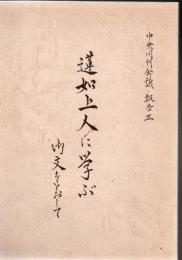 中央同行会議・報告五
蓮如上人に学ぶ
御文をとおして